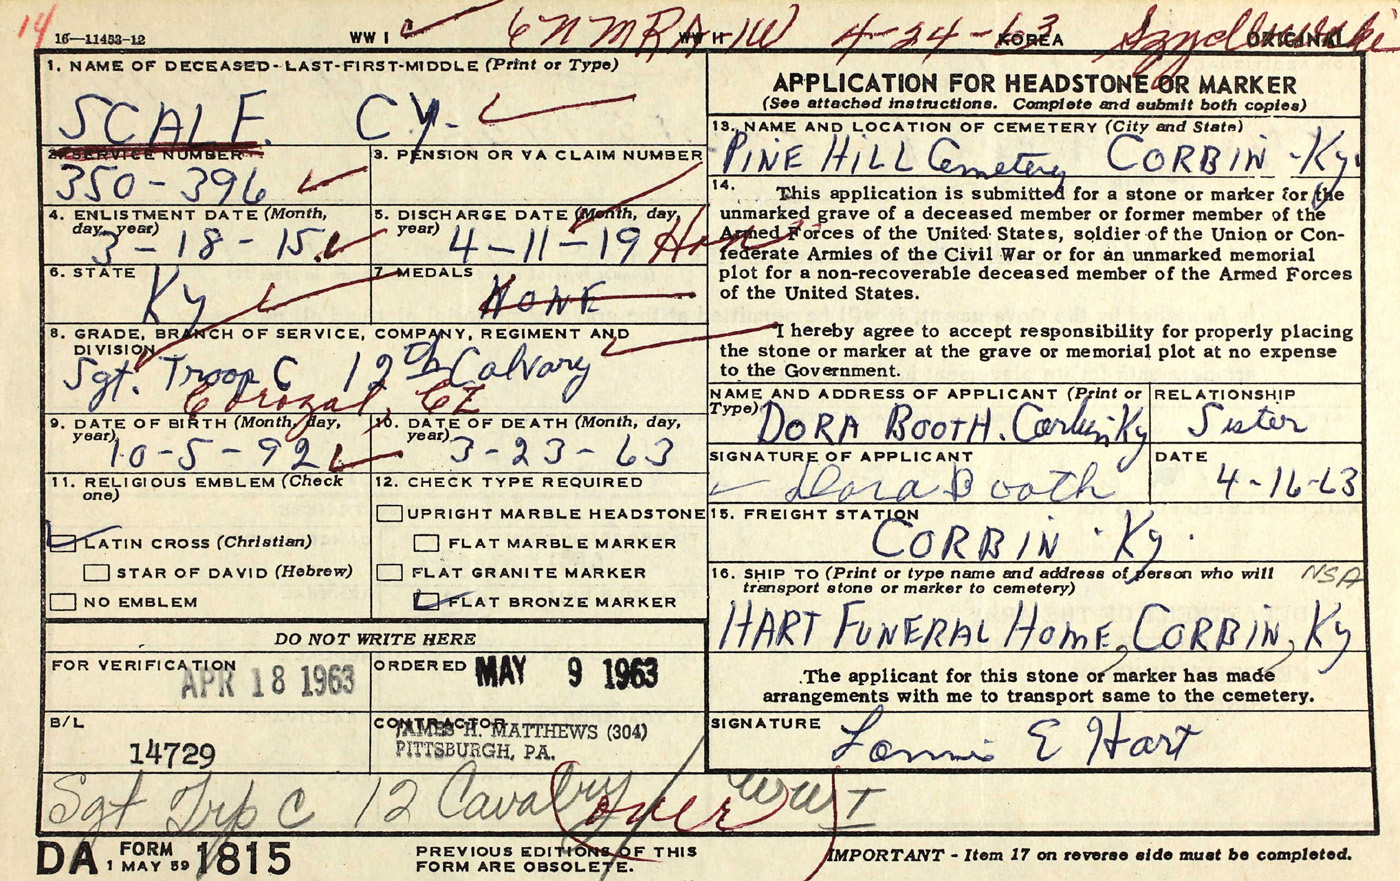 14
16—11453-12 WW I WW II 4-24-63 KOREA ORIGINAL
1. NAME OF DECEASED-LAST-FIRST-MIDDLE (Print or Type)
SCALF. CY.
2. SERVICE NUMBER
350-396
3. PENSION OR VA CLAIM NUMBER
4. ENLISTMENT DATE (Month, day, year)
3-18-15
5. DISCHARGE DATE (Month, day, year)
4-11-19 Hon
6. STATE
Ky
7. MEDALS
NONE
8. GRADE, BRANCH OF SERVICE, COMPANY, REGIMENT AND
DIVISION
Sgt. Troop C 12th Calvary
Corozal, CZ
9. DATE OF BIRTH (Month, day, year)
10-5-92
10. DATE OF DEATH (Month, day, year)
3-23-63
11. RELIGIOUS EMBLEM (Check one)
LATIN CROSS (Christian)
STAR OF DAVID (Hebrew)
NO EMBLEM
12. CHECK TYPE REQUIRED
UPRIGHT MARBLE HEADSTONE
FLAT MARBLE MARKER
FLAT GRANITE MARKER
FLAT BRONZE MARKER
DO NOT WRITE HERE
FOR VERIFICATION
APR 18 1963
ORDERED
MAY 9 1963
B/L
14729
CONTRACTOR
JAMES H. MATTHEWS (304)
PITTSBURGH, PA.
APPLICATION FOR HEADSTONE OR MARKER
(See attached instructions. Complete and submit both copies)
13. NAME AND LOCATION OF CEMETERY (City and State)
PINE HILL Cemetery CORBIN - Ky.
14. This application is submitted for a stone or marker for the
unmarked grave of a deceased member or former member of the
Armed Forces of the United States, soldier of the Union or Con-
federate Armies of the Civil War or for an unmarked memorial
plot for a non-recoverable deceased member of the Armed Forces
of the United States.
I hereby agree to accept responsibility for properly placing
the stone or marker at the grave or memorial plot at no expense
to the Government.
NAME AND ADDRESS OF APPLICANT (Print or Type)
DORA BOOTH. Corbin, Ky
RELATIONSHIP
Sister
SIGNATURE OF APPLICANT
Dora Booth
DATE
4-16-63
15. FREIGHT STATION
CORBIN - Ky.
16. SHIP TO (Print or type name and address of person who will
transport stone or marker to cemetery)
NSA
HART FUNERAL HOME, CORBIN, Ky
The applicant for this stone or marker has made
arrangements with me to transport same to the cemetery.
SIGNATURE
Lonnie E Hart
Sgt Trp C 12 Cavalry WW I
(over)
DA FORM 1 MAY 59 1815
PREVIOUS EDITIONS OF THIS
FORM ARE OBSOLETE.
IMPORTANT - Item 17 on reverse side must be completed.